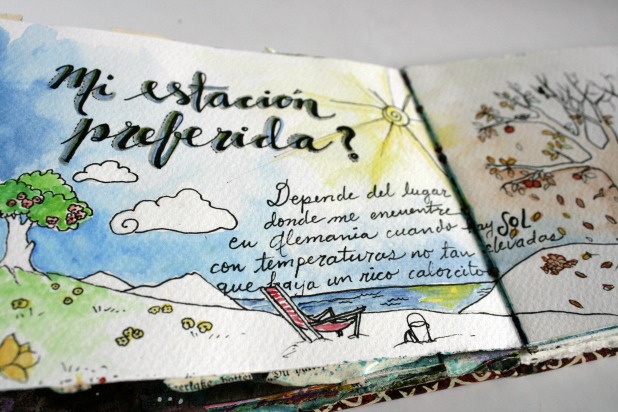 Mi estación
preferida?
Depende del lugar
donde me encuentre
en Alemania cuando hay SOL
con temperaturas no tan elevadas
que haya un rico calorcito